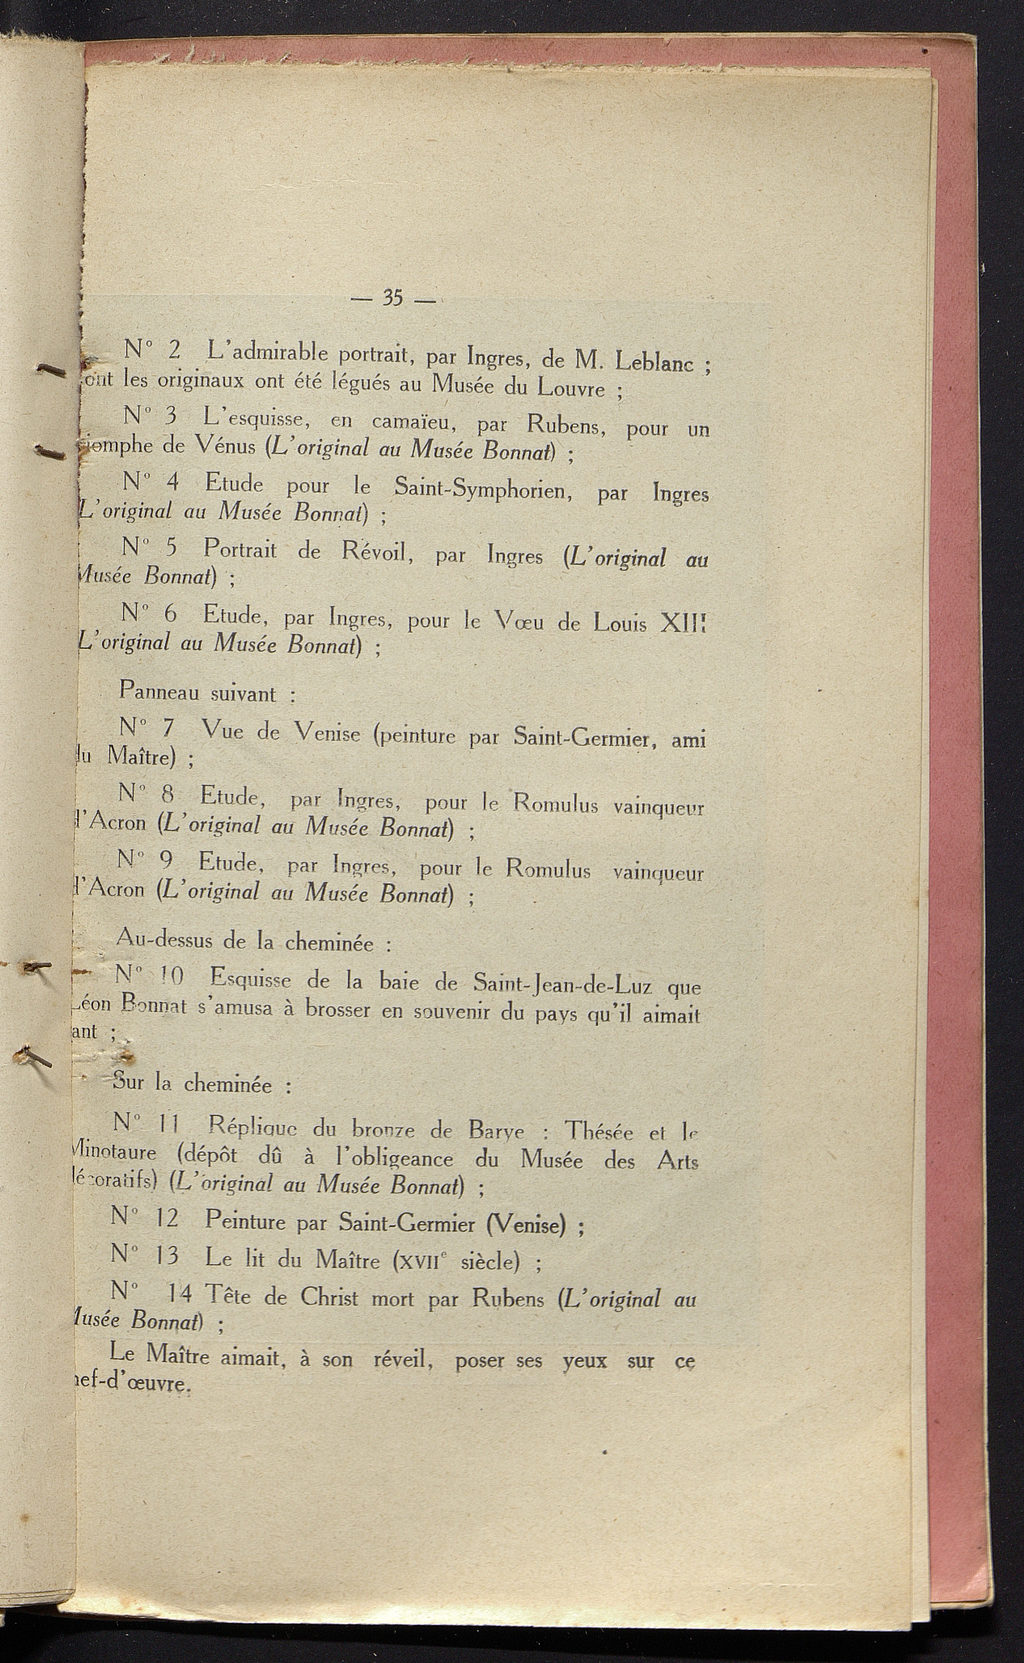 — 35 —
N° 2 L'admirable portrait, par Ingres, de M. Leblanc ;
ont les originaux ont été légués au Musée du Louvre ;
N° 3 L'esquisse, en camaïeu, par Rubens, pour un
iomphe de Vénus (L'original au Musée Bonnat) ;
N° 4 Etude pour le Saint-Symphorien, par Ingres
L'original au Musée Bonnat) ;
N° 5 Portrait de Révoil, par Ingres (L'original au
Musée Bonnat) ;
N° 6 Etude, par Ingres, pour le Vœu de Louis XIII
L'original au Musée Bonnat) ;
Panneau suivant :
N° 7 Vue de Venise (peinture par Saint-Germier, ami
du Maître) ;
N° 8 Etude, par Ingres, pour le Romulus vainqueur
d'Acron (L'original au Musée Bonnat) ;
N° 9 Etude, par Ingres, pour le Romulus vainqueur
d'Acron (L'original au Musée Bonnat) ;
Au-dessus de la cheminée :
N° 10 Esquisse de la baie de Saint-Jean-de-Luz que
Léon Bonnat s'amusa à brosser en souvenir du pays qu'il aimait
ant ;
Sur la cheminée :
N° 11 Réplique du bronze de Barye : Thésée et le
Minotaure (dépôt dû à l'obligeance du Musée des Arts
décoratifs) (L'original au Musée Bonnat) ;
N° 12 Peinture par Saint-Germier (Venise) ;
N° 13 Le lit du Maître (XVIIe siècle) ;
N° 14 Tête de Christ mort par Rubens (L'original au
Musée Bonnat) ;
Le Maître aimait, à son réveil, poser ses yeux sur ce
hef-d'œuvre.